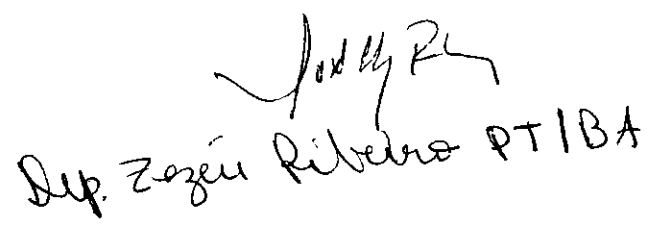 Dep. Zezéu Ribeiro PT/BA